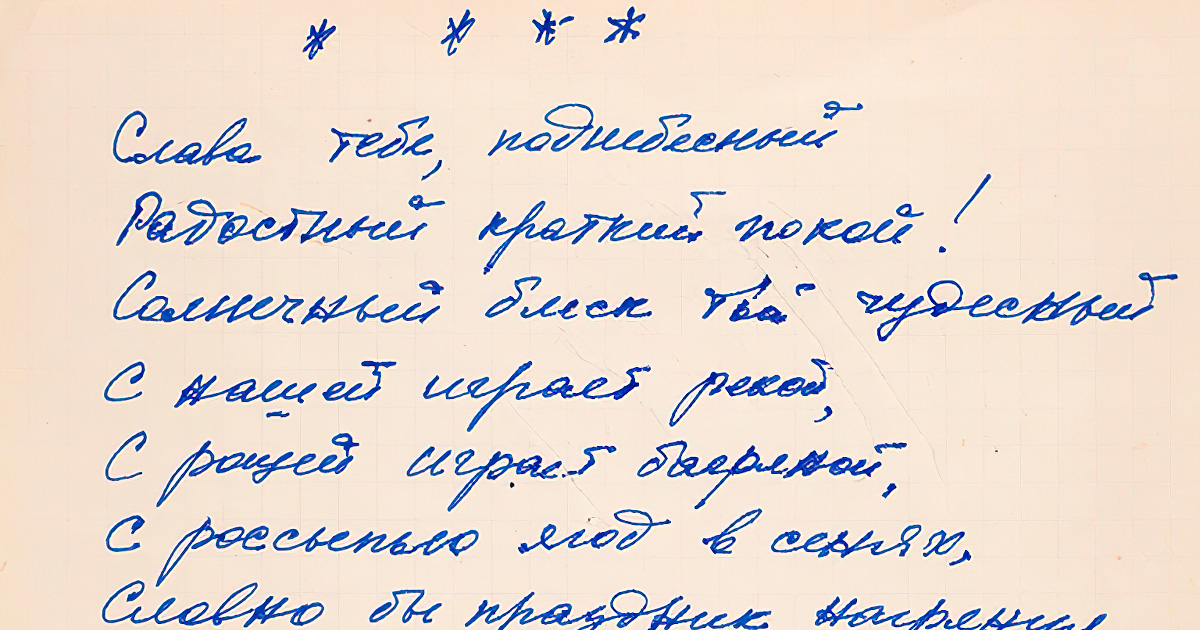 * * * *
Слава тебе, поднебесный
Радостный краткий покой!
Солнечный блеск твой чудесный
С нашей играет рекой,
С рощей играет багряной,
С россыпью ягод в сенях,
Словно бы праздник нагрянул